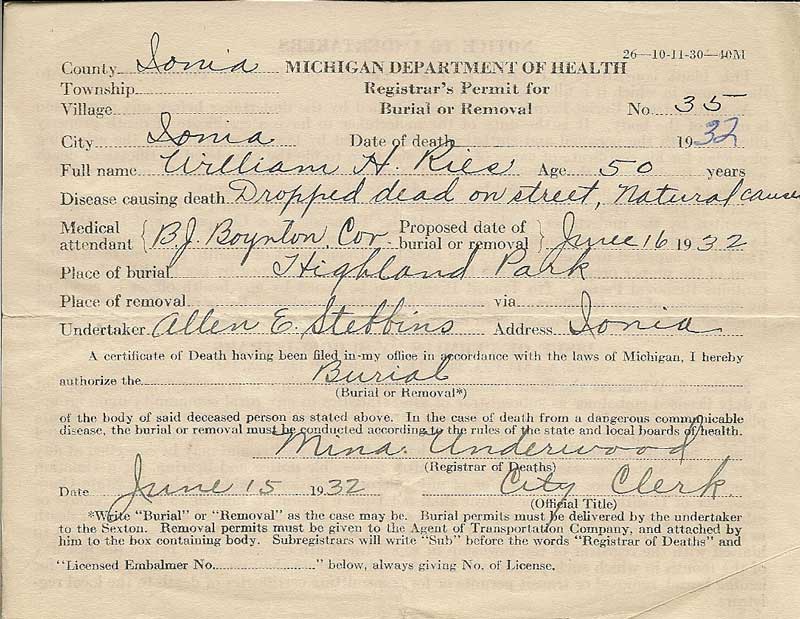 26—10-11-30—40M
County Ionia MICHIGAN DEPARTMENT OF HEALTH
Township Registrar's Permit for
Village Burial or Removal No. 35
City Ionia Date of death 1932
Full name William H. Ries Age 50 years
Disease causing death Dropped dead on street, Natural cause
Medical attendant } B.J. Boynton, Cor Proposed date of burial or removal } June 16 1932
Place of burial Highland Park
Place of removal via
Undertaker Allen E. Stebbins Address Ionia
A certificate of Death having been filed in my office in accordance with the laws of Michigan, I hereby
authorize the Burial
(Burial or Removal*)
of the body of said deceased person as stated above. In the case of death from a dangerous communicable
disease, the burial or removal must be conducted according to the rules of the state and local boards of health.
Mina Underwood
(Registrar of Deaths)
Date June 15 1932 City Clerk.
(Official Title)
*Write "Burial" or "Removal" as the case may be. Burial permits must be delivered by the undertaker
to the Sexton. Removal permits must be given to the Agent of Transportation Company, and attached by
him to the box containing body. Subregistrars will write "Sub" before the words "Registrar of Deaths" and
"Licensed Embalmer No. " below, always giving No. of License.